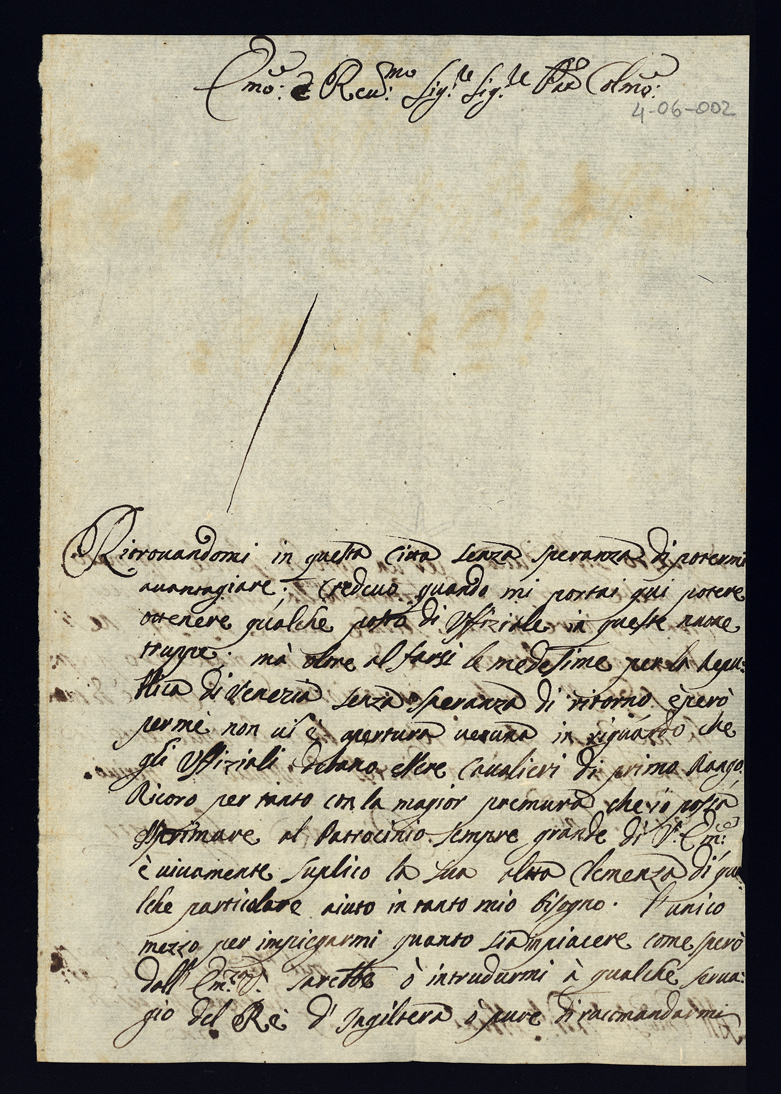 Em̃o: e Reu:mo Sig:re Sig:re P̃ne Colmo:
4-06-002
Ritrouandomi in questa Citta senza speranza di potermi
auantagiare; Credeuo quando mi portai qui potere
ottenere qualche posto di Uffiziale in queste nuoue
truppe. mà oltre al farsi le medesime per la Repu:
blica di Venezia senza speranza di ritorno, e però
per me non ui è apertura ueruna in riguardo che
gli Uffiziali debano essere Cavalieri di primo Rango,
Ricoro per tanto con la magior premura che io possa
esprimare al Patrocinio sempre grande di V. Em:
è viuamente suplico la sua alta Clemenza di qua
lche particolare aiuto in tanto mio bisogno. l'unico
mezzo per impiegarmi quanto sia in piacere come sperò
dall' Em: V. sarebbe ò intrudurmi à qualche serua:
gio del Re d'Ingiltera o pure di racmandarmi